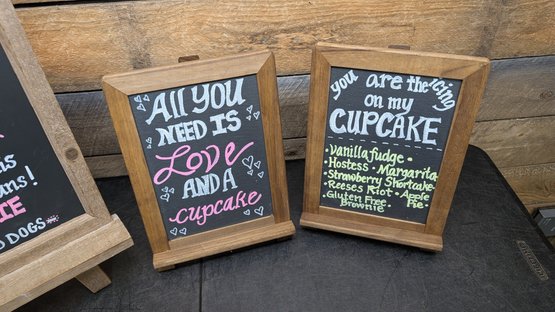 ns
ans!
IE
D DOGS
All you
NEED IS
Love
AND A
cupcake
you are the icing
on my
CUPCAKE
• Vanilla fudge •
Hostess • Margarita
• Strawberry Shortcake
• Reeses Riot • Apple Pie
• Gluten Free Brownie